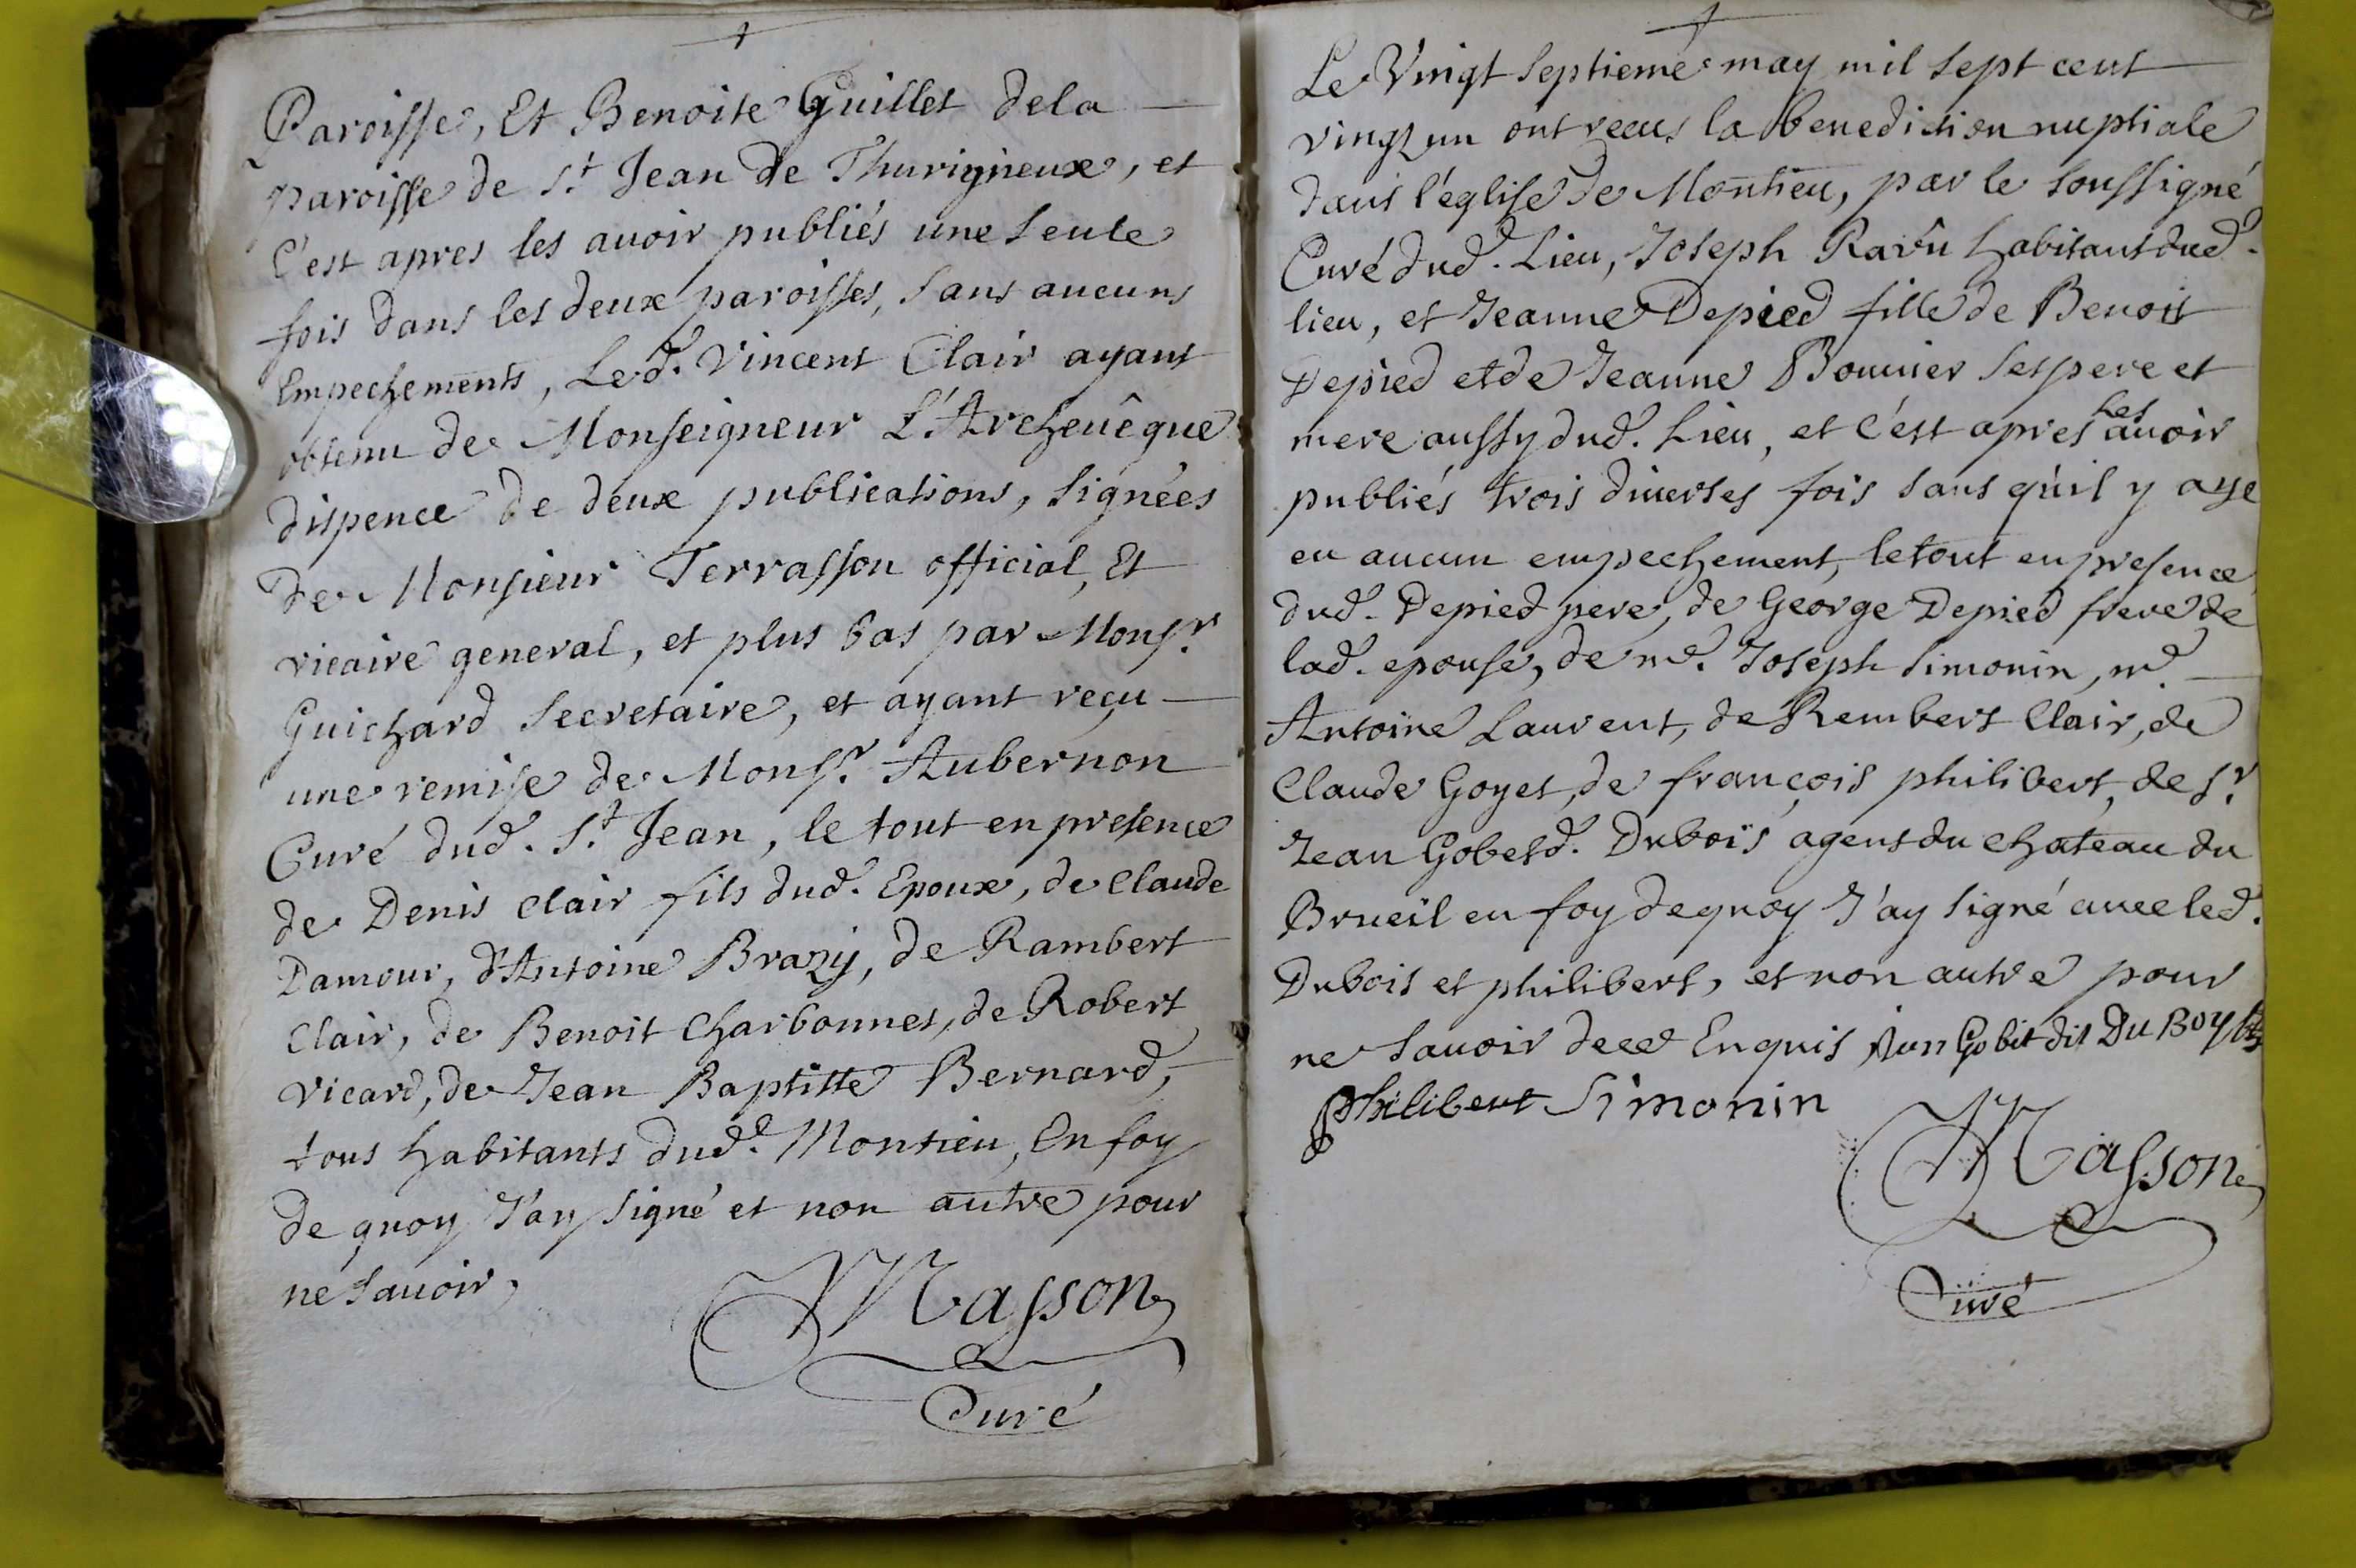 Paroisse, Et Benoite Guillet dela
paroisse de St Jean de Thurigneux, et
C'est apres les auoir publiés une seule
fois dans les deux paroisses, sans aucuns
Empechements, Led. Vincent Clair ayant
obtenu de Monseigneur L'Archeuêque
dispence de deux publications, signées
de Monsieur Terrasson official, Et
vicaire general, et plus bas par Monsr.
Guichard secretaire, et ayant reçu
une remise de Monsr. Aubernon
Curé dud. St Jean, le tout en presence
de Denis Clair fils dud. Epoux, de Claude
Damour, d'Antoine Brazy, de Rambert
Clair, de Benoit Charbonnet, de Robert
Vicard, de Jean Baptiste Bernard,
tous habitants dud. Montieu, En foy
de quoy J'ay signé et non autre pour
ne sauoir,
Masson
Curé
Le Vingt septieme may mil sept cent
vingt un ont recus la benediction nuptiale
dans l'église de Montieu, par le soussigné
Curé dud. Lieu, Joseph Ravû habitant dud.
lieu, et Jeanne Depied fille de Benoit
Depied et de Jeanne Bouuier ses pere et
mere aussy dud. Lieu, et c'est apres les auoir
publiés trois diuerses fois sans qu'il y aye
eu aucun empechement, le tout en presence
dud. Depied pere, de George Depied frere de
lad. epouse, de md. Joseph Simonin, md.
Antoine Laurent, de Rembert Clair, de
Claude Goyet, de françois philibert, de sr.
Jean Gobet d. Dubois agent du chateau du
Brueil en foy de quoy J'ay signé auec led.
Dubois et philibert, et non autre pour
ne sauoir de ce Enquis Jean Gobit dit Du Boys
philibert Simonin
Masson
Curé